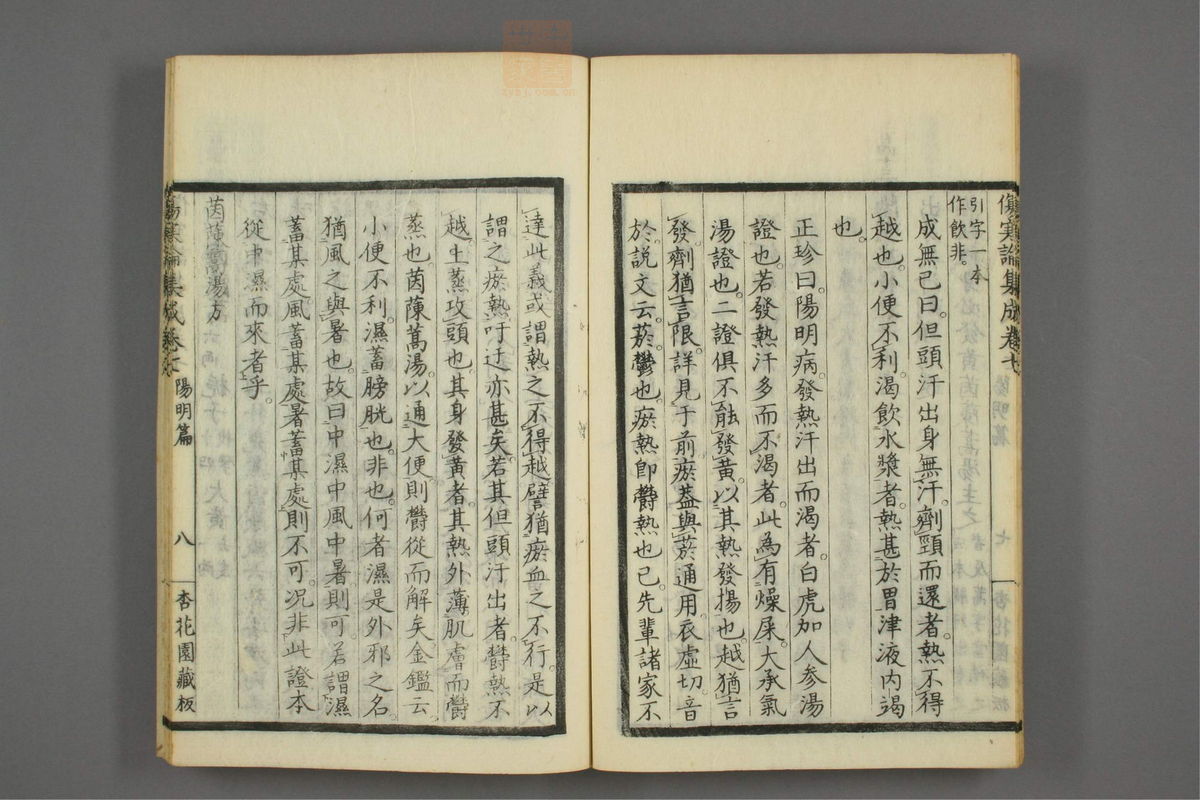 傷寒論集成卷七
引字一本
作飲非。
成無己曰。但頭汗出身無汗。劑頸而還者。熱不得
越也。小便不利。渴飲水漿者。熱甚於胃津液內竭
也。
正珍曰。陽明病。發熱汗出而渴者。白虎加人參湯
證也。若發熱汗多而不渴者。此為有燥屎。大承氣
湯證也。二證俱不能發黃。以其熱發揚也。越猶言
發。劑猶言限。詳見于前。瘀蓋與菸通用。衣虛切。音
於。說文云。菸。鬱也。瘀熱即鬱熱也已。先輩諸家不
達此義。或謂熱之不得越。譬猶瘀血之不行。是以
謂之瘀熱。吁迂亦甚矣。若其但頭汗出者。鬱熱不
越。上蒸攻頭也。其身發黃者。其熱外薄肌膚而鬱
蒸也。茵蔯蒿湯。以通大便。則鬱從而解矣。金鑑云
小便不利。濕蓄膀胱也。非也。何者。濕是外邪之名
猶風之與暑也。故曰中濕中風中暑則可。若謂濕
蓄某處。風蓄某處。暑蓄某處。則不可。況非此證本
從中濕而來者乎。
茵蔯蒿湯方
傷寒論集成卷七
陽明篇
八
杏花園藏板